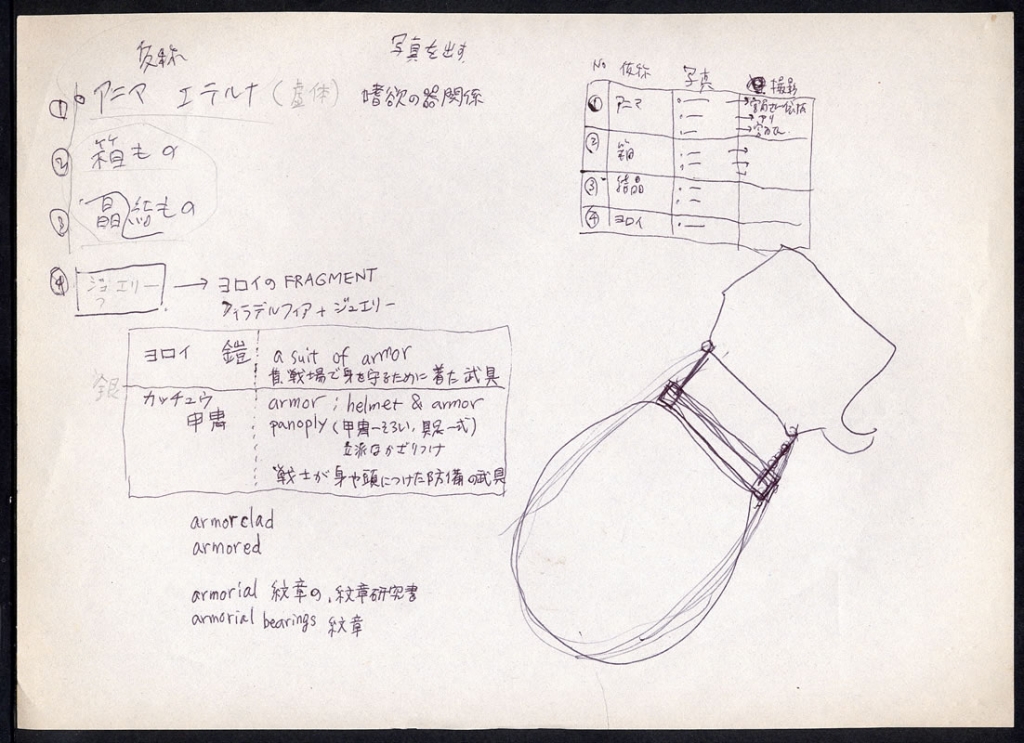 仮称
写真を出す
① アニマ エテルナ (虚体) 嗜欲の器関係
② 箱もの
③ 晶結もの
④ ジュエリー → ヨロイの FRAGMENT
フィラデルフィア + ジュエリー
ヨロイ 鎧 a suit of armor
昔、戦場で身を守るために着た武具
銀
カッチュウ armor ; helmet & armor
甲冑 panoply (甲冑一そろい, 具足一式)
立派なかざりつけ
戦士が身や頭につけた防備の武具
armorclad
armored
armorial 紋章の, 紋章研究書
armorial bearings 紋章
No 仮称 写真 撮影
① アニマ
② 箱
③ 結晶
④ ヨロイ